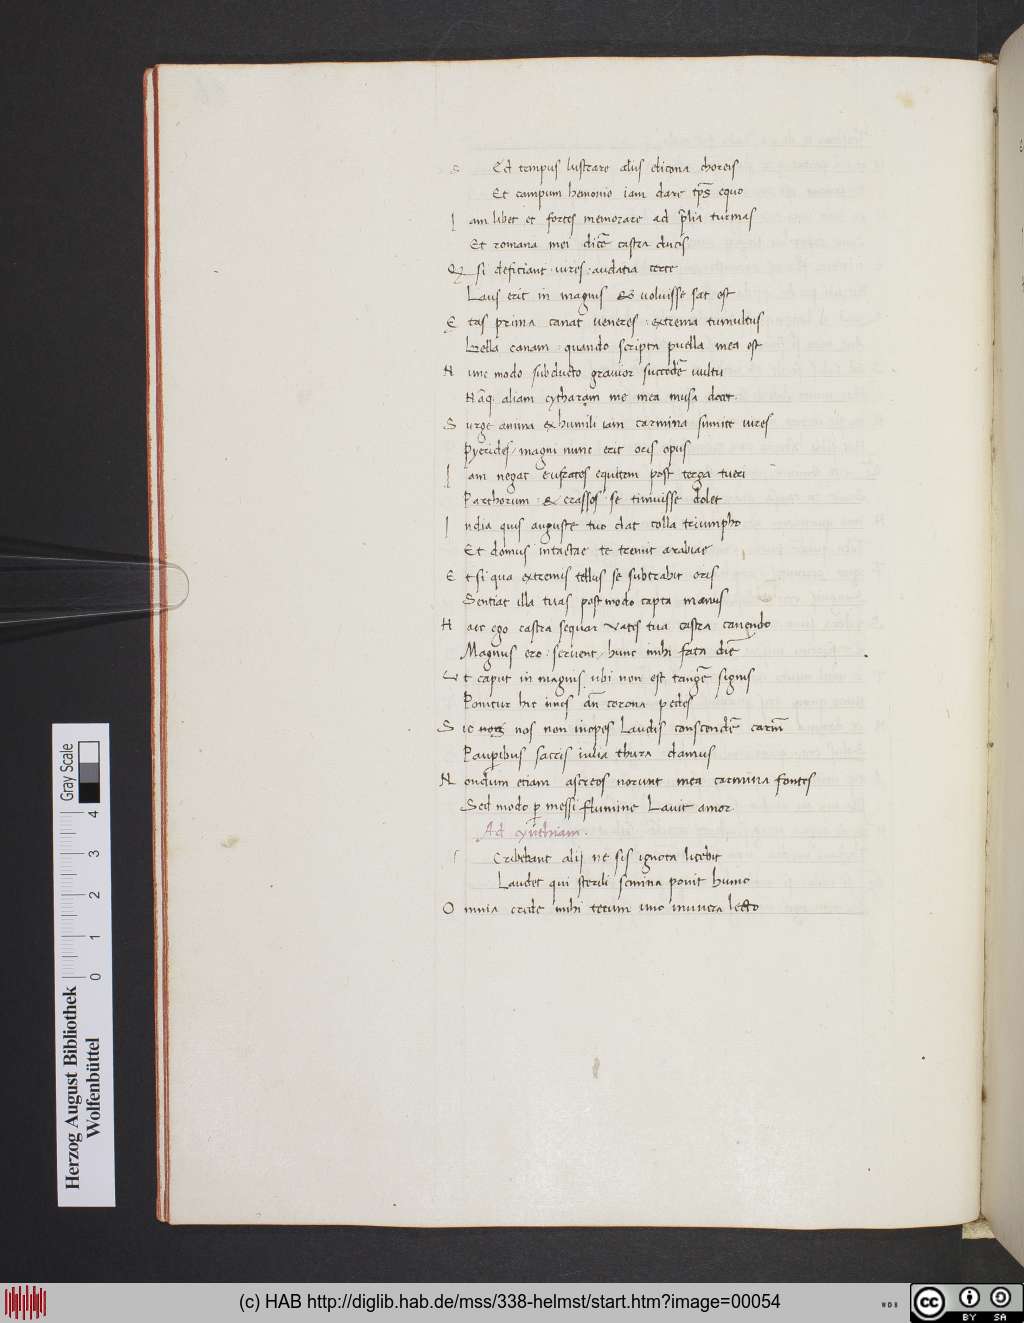 s Ed tempus lustrare alus elicona choreis
Et campum hemonio iam dare tp̄s equo
I am libet et fortes memorare ad p̄lia turmas
Et romana mei dicē castra ducis
Q si deficiant · uires · audatia certe
Laus erit in magnis & voluisse sat est
E tas prima canat veneres · extrema tumultus
Bella canam · quando scripta puella mea est
N unc modo subducto grauior succedē uultu
Nāq aliam cytharam me mea musa docet ·
S urge anima ex humili iam carmina sumite uires
Pyerides / magni nunc erit oris opus
I am negat eufrates equitem post terga tueri
Parthorum · & crassos · se timuisse dolet
I ndia quis auguste tuo dat colla triumpho
Et domus intactae te tremit arabiae
E t si qua extremis tellus se subtrahit oris
Sentiat illa tuas post modo capta manus
H aec ego castra sequar vates tua castra canendo
Magnus ero · seruent / hunc mihi fata diē
V t caput in magnis ubi non est tangē signis
Ponitur hic imis ān corona pedes
S ic nos non inopes Laudis conscendē carm̄
Pauꝑibus sacris iulia thura damus
N ondum etiam ascreos norunt mea carmina fontes
Sed modo ꝑ messi flumine Lauit amor
Ad cynthiam ·
s Cribebant alij ne sis ignota licebit
Laudet qui sterili semina ponit humo
O mnia crede mihi tecum uno munera lecto
Gray Scale
0 1 2 3 4
Herzog August Bibliothek
Wolfenbüttel
(c) HAB http://diglib.hab.de/mss/338-helmst/start.htm?image=00054
WDB
cc BY SA